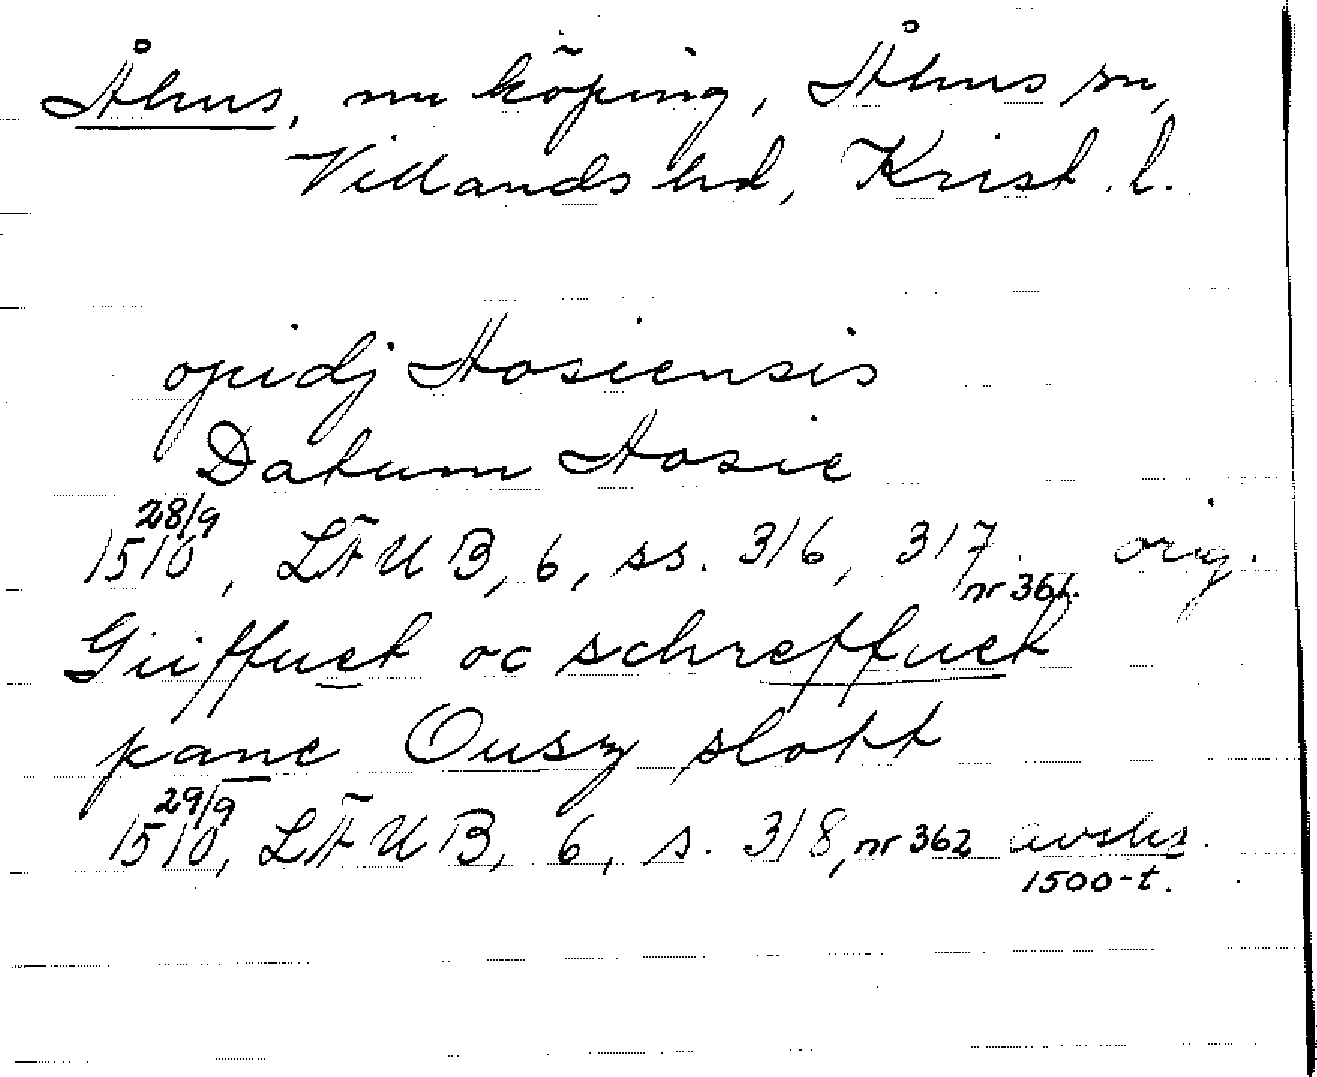 Åhus, nu köping, Åhus sn,
Villands hd, Krist. l.
opidj Aosiensis
Datum Aosie
28/9
1510, LÄUB, 6, ss. 316, 317. orig.
nr 361.
Giiffuet oc schreffuet
pane Ousz slott
29/9
1510, LÄUB, 6, s. 318, nr 362 avskr.
1500-t.